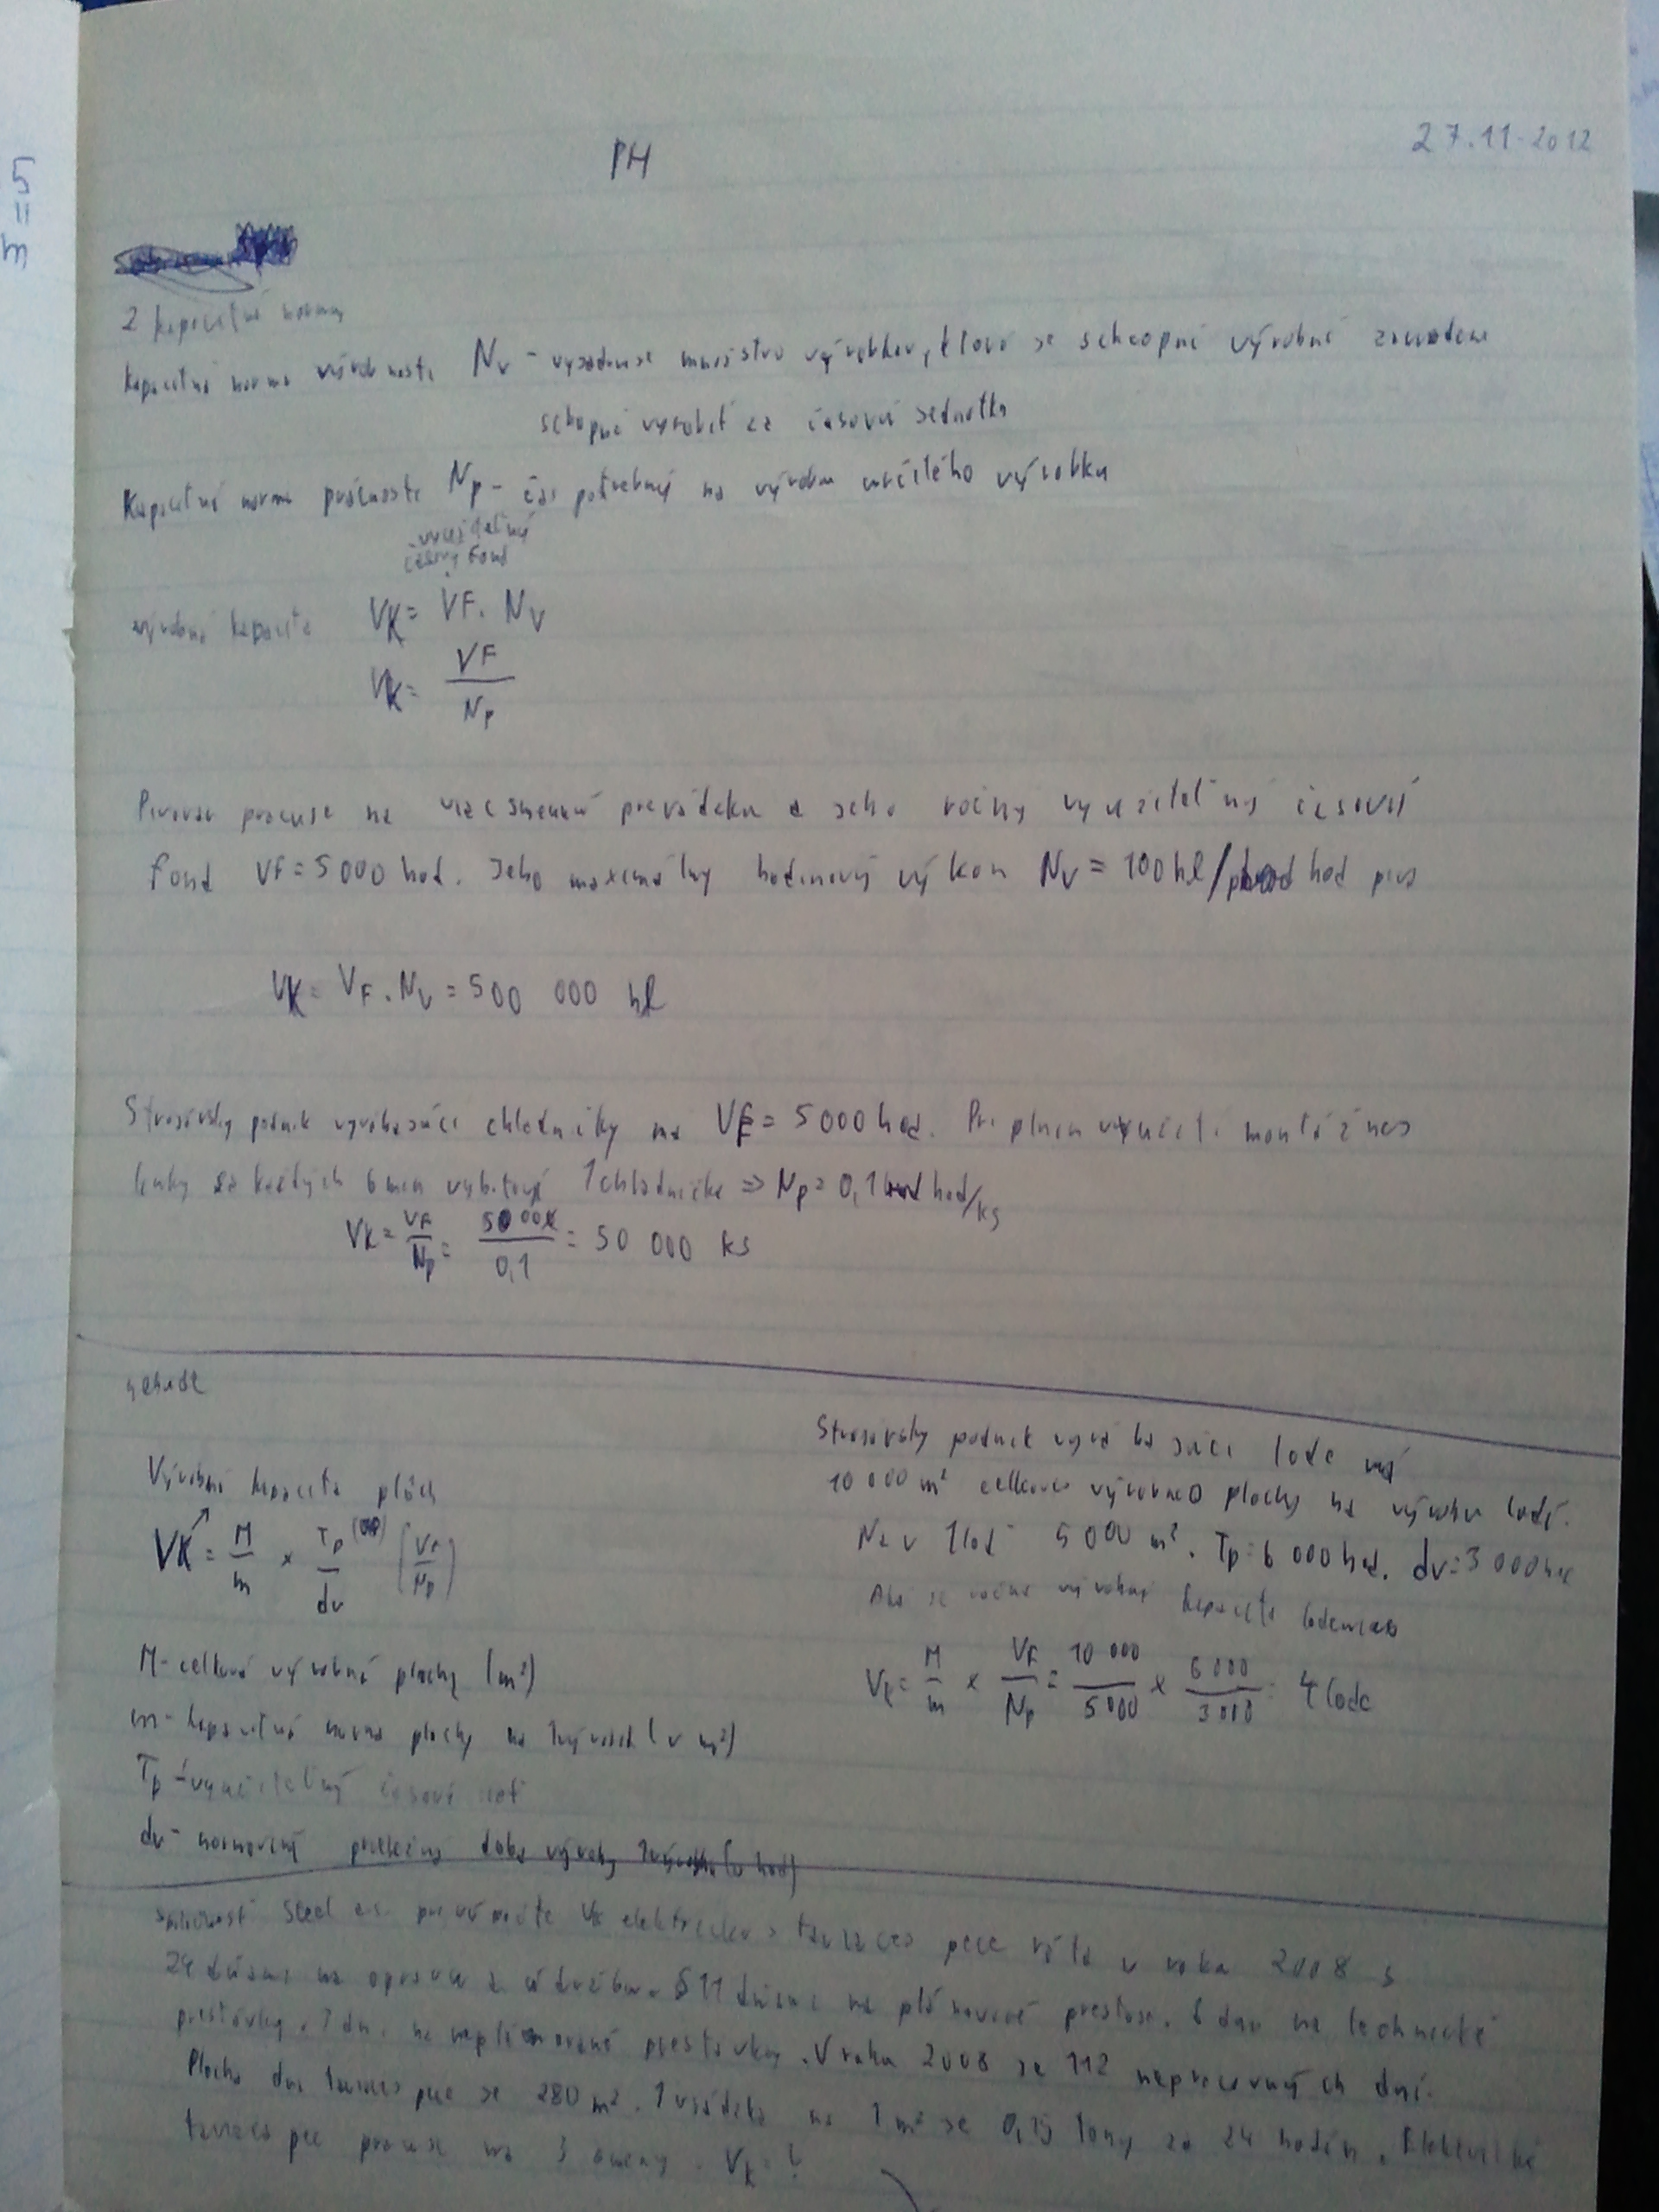 5 = m
PH
27.11.2012
2 kapacitné normy
Kapacitná norma výrobnosti Nv - vyjadruje množstvo výrobkov, ktoré je schopné výrobné zariadenie
schopné vyrobiť za časovú jednotku
Kapacitná norma prácnosti Np - čas potrebný na výrobu určitého výrobku
využiteľný
časový fond
výrobná kapacita VK = VF . Nv
VK = VF / Np
Pivovar pracuje na viac smennú prevádzku a jeho ročný využiteľný časový
fond VF = 5 000 hod. Jeho maximálny hodinový výkon Nv = 100 hl/ hod piva
VK = VF . Nv = 500 000 hl
Strojársky podnik vyrábajúci chladničky má VF = 5 000 hod. Pri plnom využití montážnej
linky sa každých 6 min 1 chladnička => Np = 0,1 hod/ks
VK = VF / Np = 5 000 / 0,1 = 50 000 ks
Výrobná kapacita plôch
VK = M / m x Tp / dv ( VF / Np )
M - celková výrobná plocha (m²)
m - kapacitná norma plochy na 1 výrobok (v m²)
Tp - využiteľný časový
dv - normovaná priebežná doba výroby 1 výrobku (v hod)
Strojársky podnik vyrábajúci lode má
10 000 m² celkovej výrobnej plochy na výrobu lodí.
Na 1 loď 5 000 m². Tp = 6 000 hod. dv = 3 000 hod
Aká je ročná výrobná kapacita
VK = M / m x VF / Np = 10 000 / 5 000 x 6 000 / 3 000 = 4 lode
Steel a.s. VK elektrickej taviacej pece v roku 2008 s
24 dňami na opravu a údržbu. S 11 dňami na plánované prestoje. 6 dní na technické
prestávky. 7 dní na neplánované prestávky. V roku 2008 je 112 nepracovných dní.
Plocha dna taviacej pece je 280 m². 1 vsádzka na 1 m² je 0,15 tony za 24 hodín. Elektrická
taviaca pec pracuje na 3 smeny. VK = ?